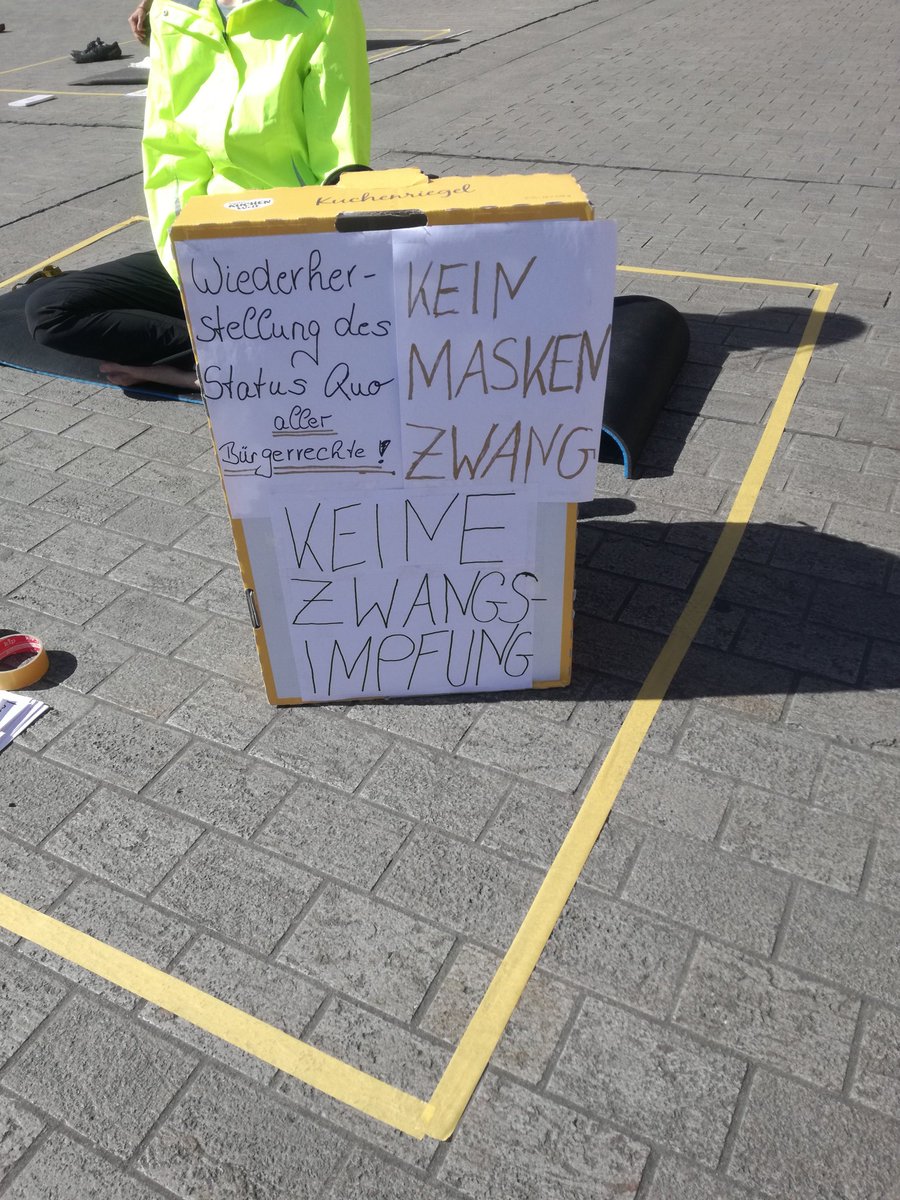 KUCHEN
Kuchenriegel
Wiederher-
stellung des
Status Quo
aller
Bürgerrechte!
KEIN
MASKEN
ZWANG
KEINE
ZWANGS-
IMPFUNG